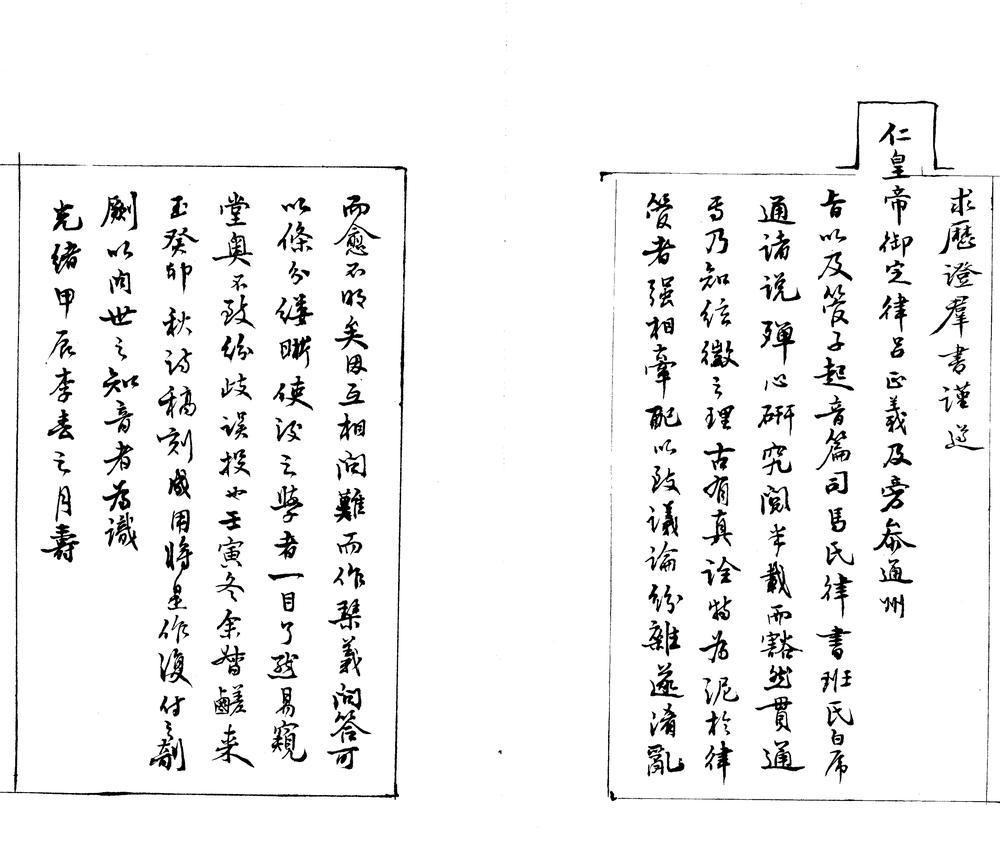 求歷證羣書謹遵
仁皇帝御定律呂正義及旁叅通州
旨以及管子起音篇司馬氏律書班氏白虎
通諸说殫心研究閲半載而豁然貫通
焉乃知絃徽之理古有真詮特为泥於律
管者强相牽配以致議論紛雜遂淆亂
而愈不明矣因互相问難而作琴義问答可
以條分縷晰使後之學者一目了然易窺
堂奥不致紛歧误投也壬寅冬余督鹺来
玉癸卯秋诗稿刻成用將是作復付之剞
劂以问世之知音者为識
光绪甲辰季春之月壽